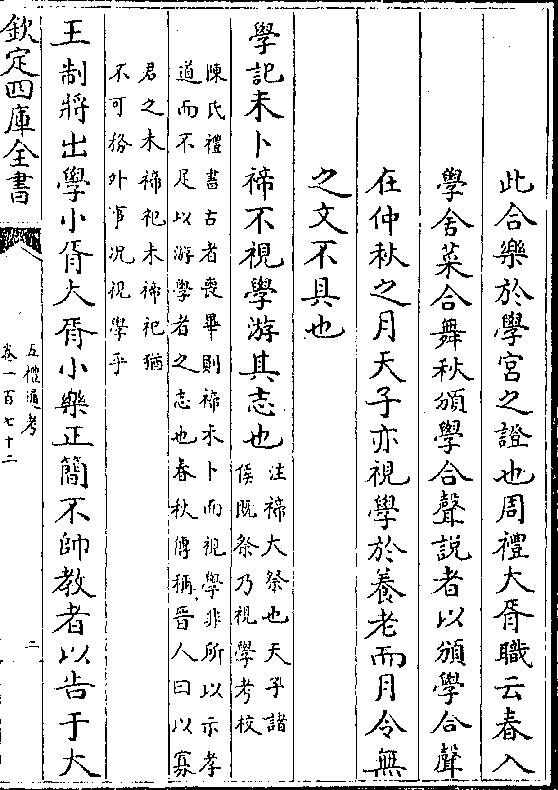 此合樂於學宫之證也周禮大胥職云春入
學舍菜合舞秋頒學合聲説者以頒學合聲
在仲秋之月天子亦視學於養老而月令無
之文不具也
學記未卜禘不視學游其志也
注禘大祭也天子諸
侯既祭乃視學考校
陳氏禮書古者喪畢則禘未卜而視學非所以示孝
道而不足以游學者之志也春秋傳稱晉人曰以寡
君之未禘祀未禘祀猶
不可格外事况視學乎
王制將出學小胥大胥小樂正簡不帥教者以告于大
欽定四庫全書
五禮通考
卷一百七十二
二